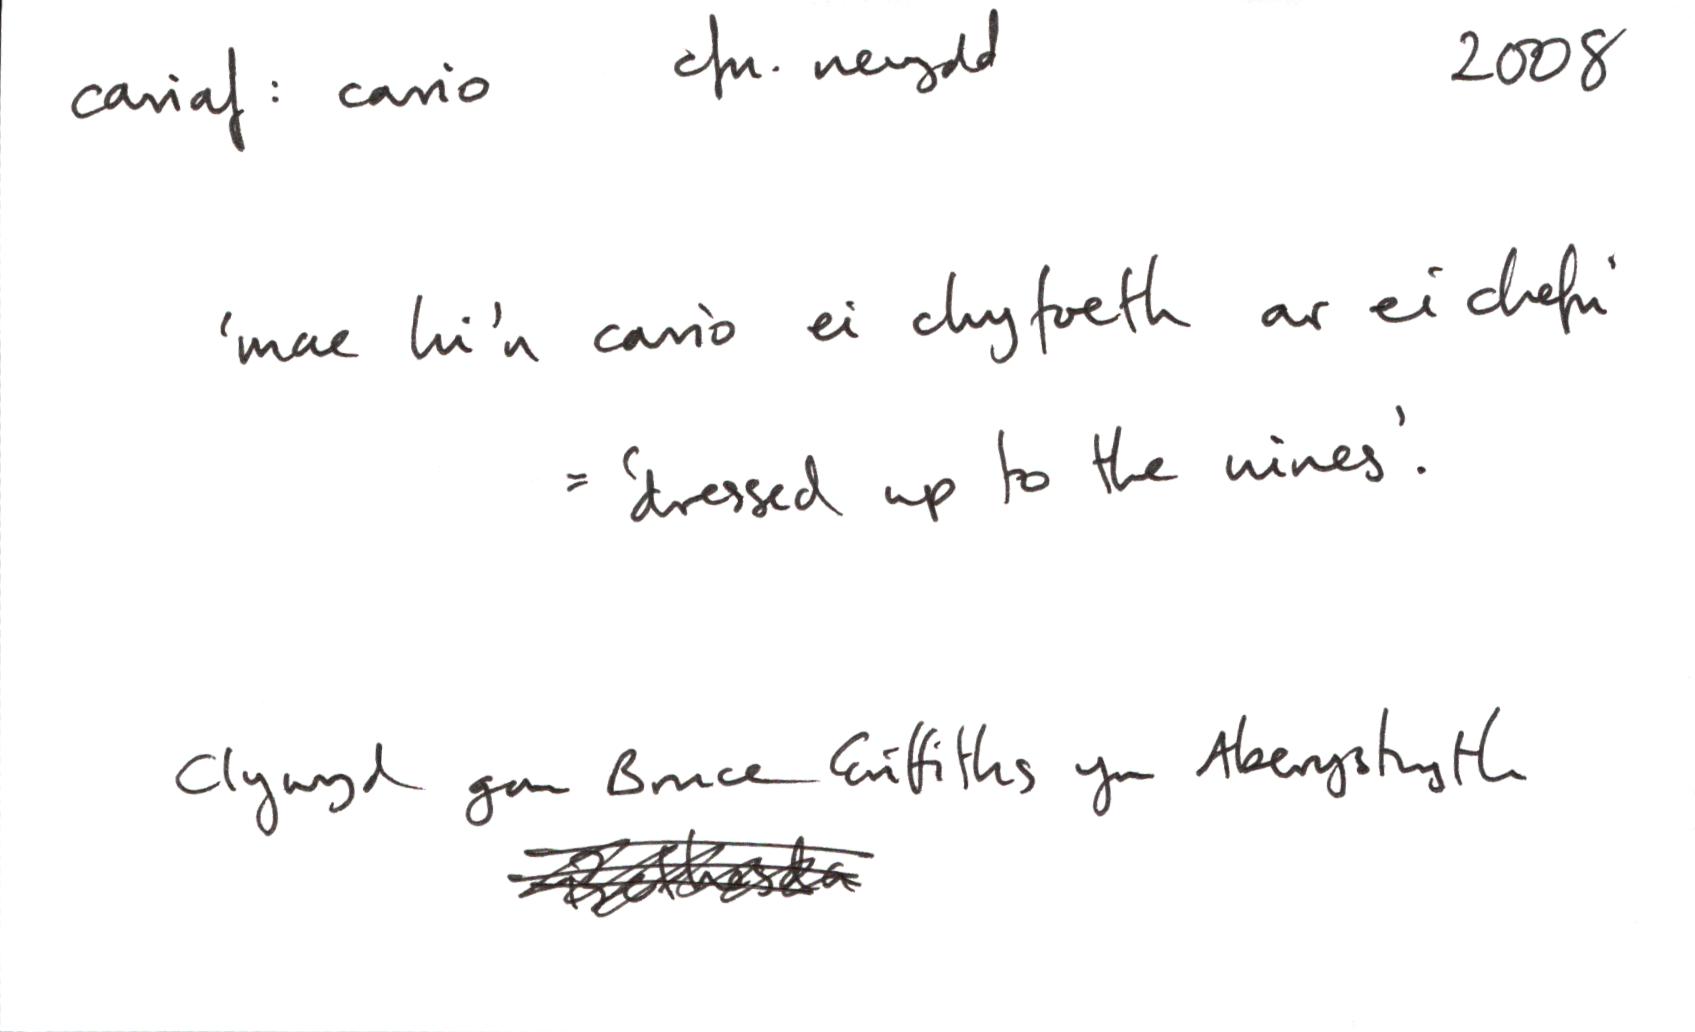 cariaf: cario cfn. newydd 2008
'mae hi'n cario ei chyfoeth ar ei chefn'
= 'dressed up to the nines'.
Clywyd gan Bruce Griffiths yn Aberystwyth